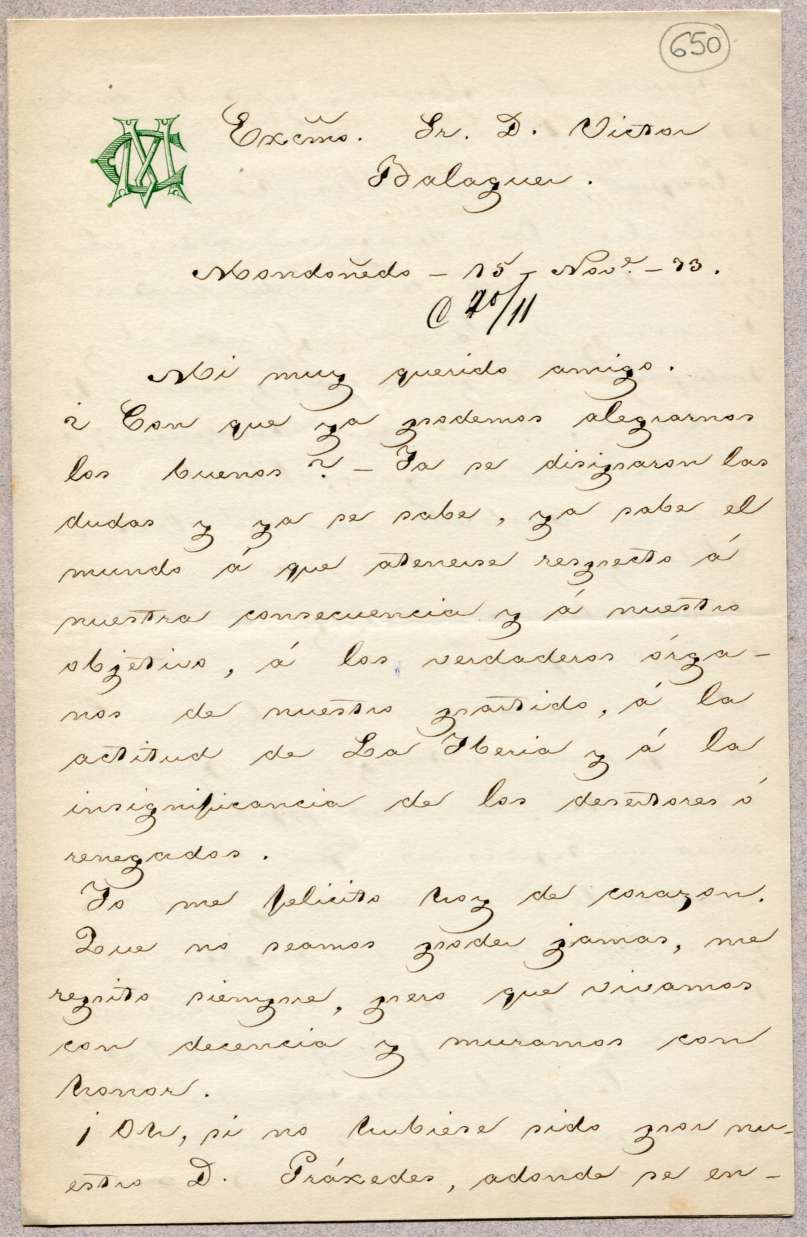 650
Excmo. Sr. D. Victor
Balaguer.
Mondoñedo - 15 - Nove. - 73.
C 20/11
Mi muy querido amigo.
¿Con que ya podemos alegrarnos
los buenos? - Ya se disiparon las
dudas y ya se sabe, ya sabe el
mundo á que atenerse respecto á
nuestra consecuencia y á nuestro
objetivo, á los verdaderos órga-
nos de nuestro partido, á la
actitud de La Iberia y á la
insignificancia de los desertores ó
renegados.
Yo me felicito hoy de corazon.
Que no seamos poder jamas, me
repito siempre, pero que vivamos
con decencia y muramos con
honor.
¡Oh, si no hubiese sido por nu-
estro D. Práxedes, adonde se en-